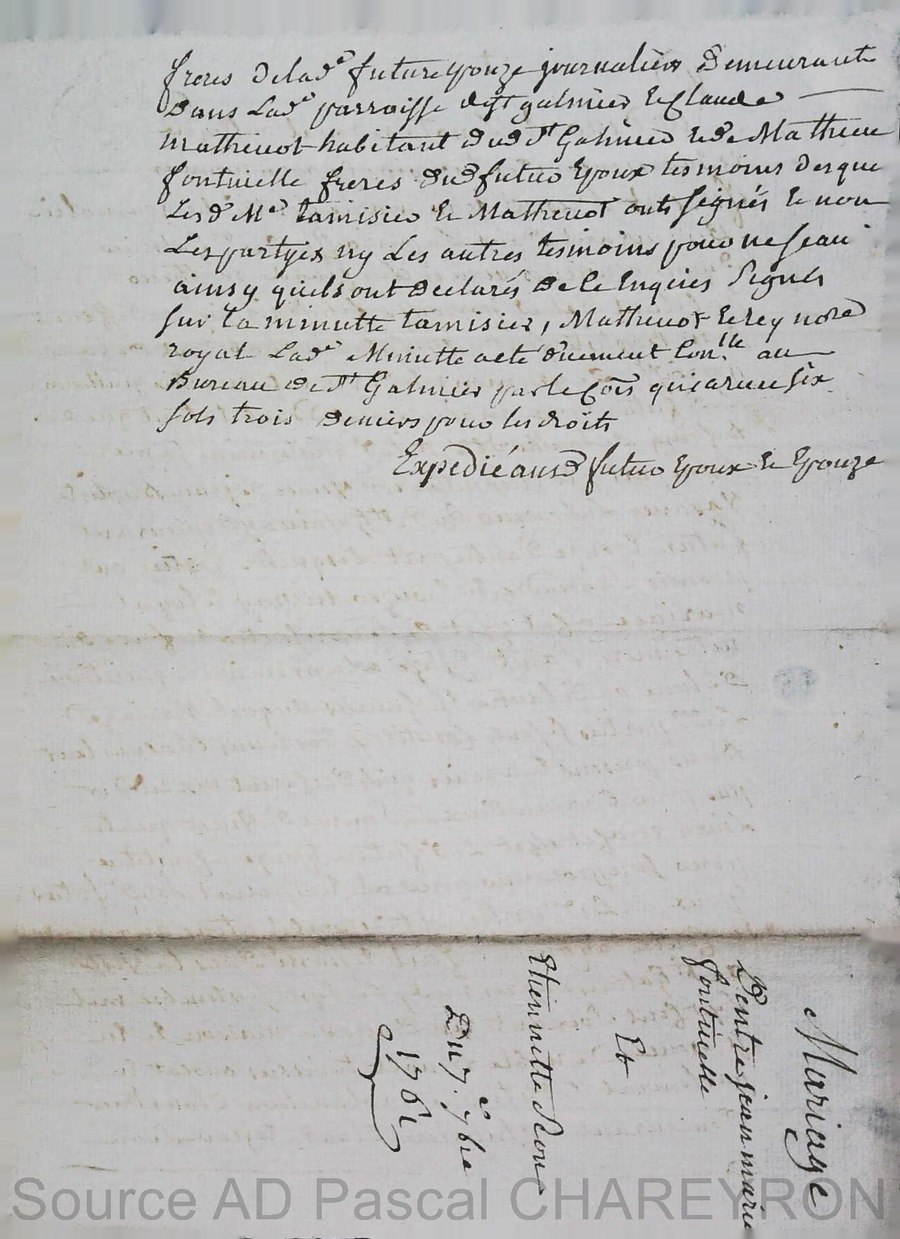 freres de lad.e future epouze journaliers Demeurant
Dans Lad.e parroisse de St galmier & Claude
mathevot habitant dud St Galmier & de Mathieu
fontvielle freres dud futur Epoux tesmoins desque
Les d. Me tamisier & Mathevot ont signés & non
Les partyes ny Les autres tesmoins pour ne scau
ainsy quils ont declarés de ce Enquis Signés
sur la minutte tamisier, Mathevot & rey notre
royal Lad.e Minutte a eté duement Con.lle au
Bureau de St Galmier par le Cõis qui a receu six
sols trois deniers pour les droits
Expedié ausd futur Epoux & Epouze
Mariage
D'entre jean marie
fontvielle
Et
Etiennette
Du 7.e 7bre
Source AD Pascal CHAREYRON